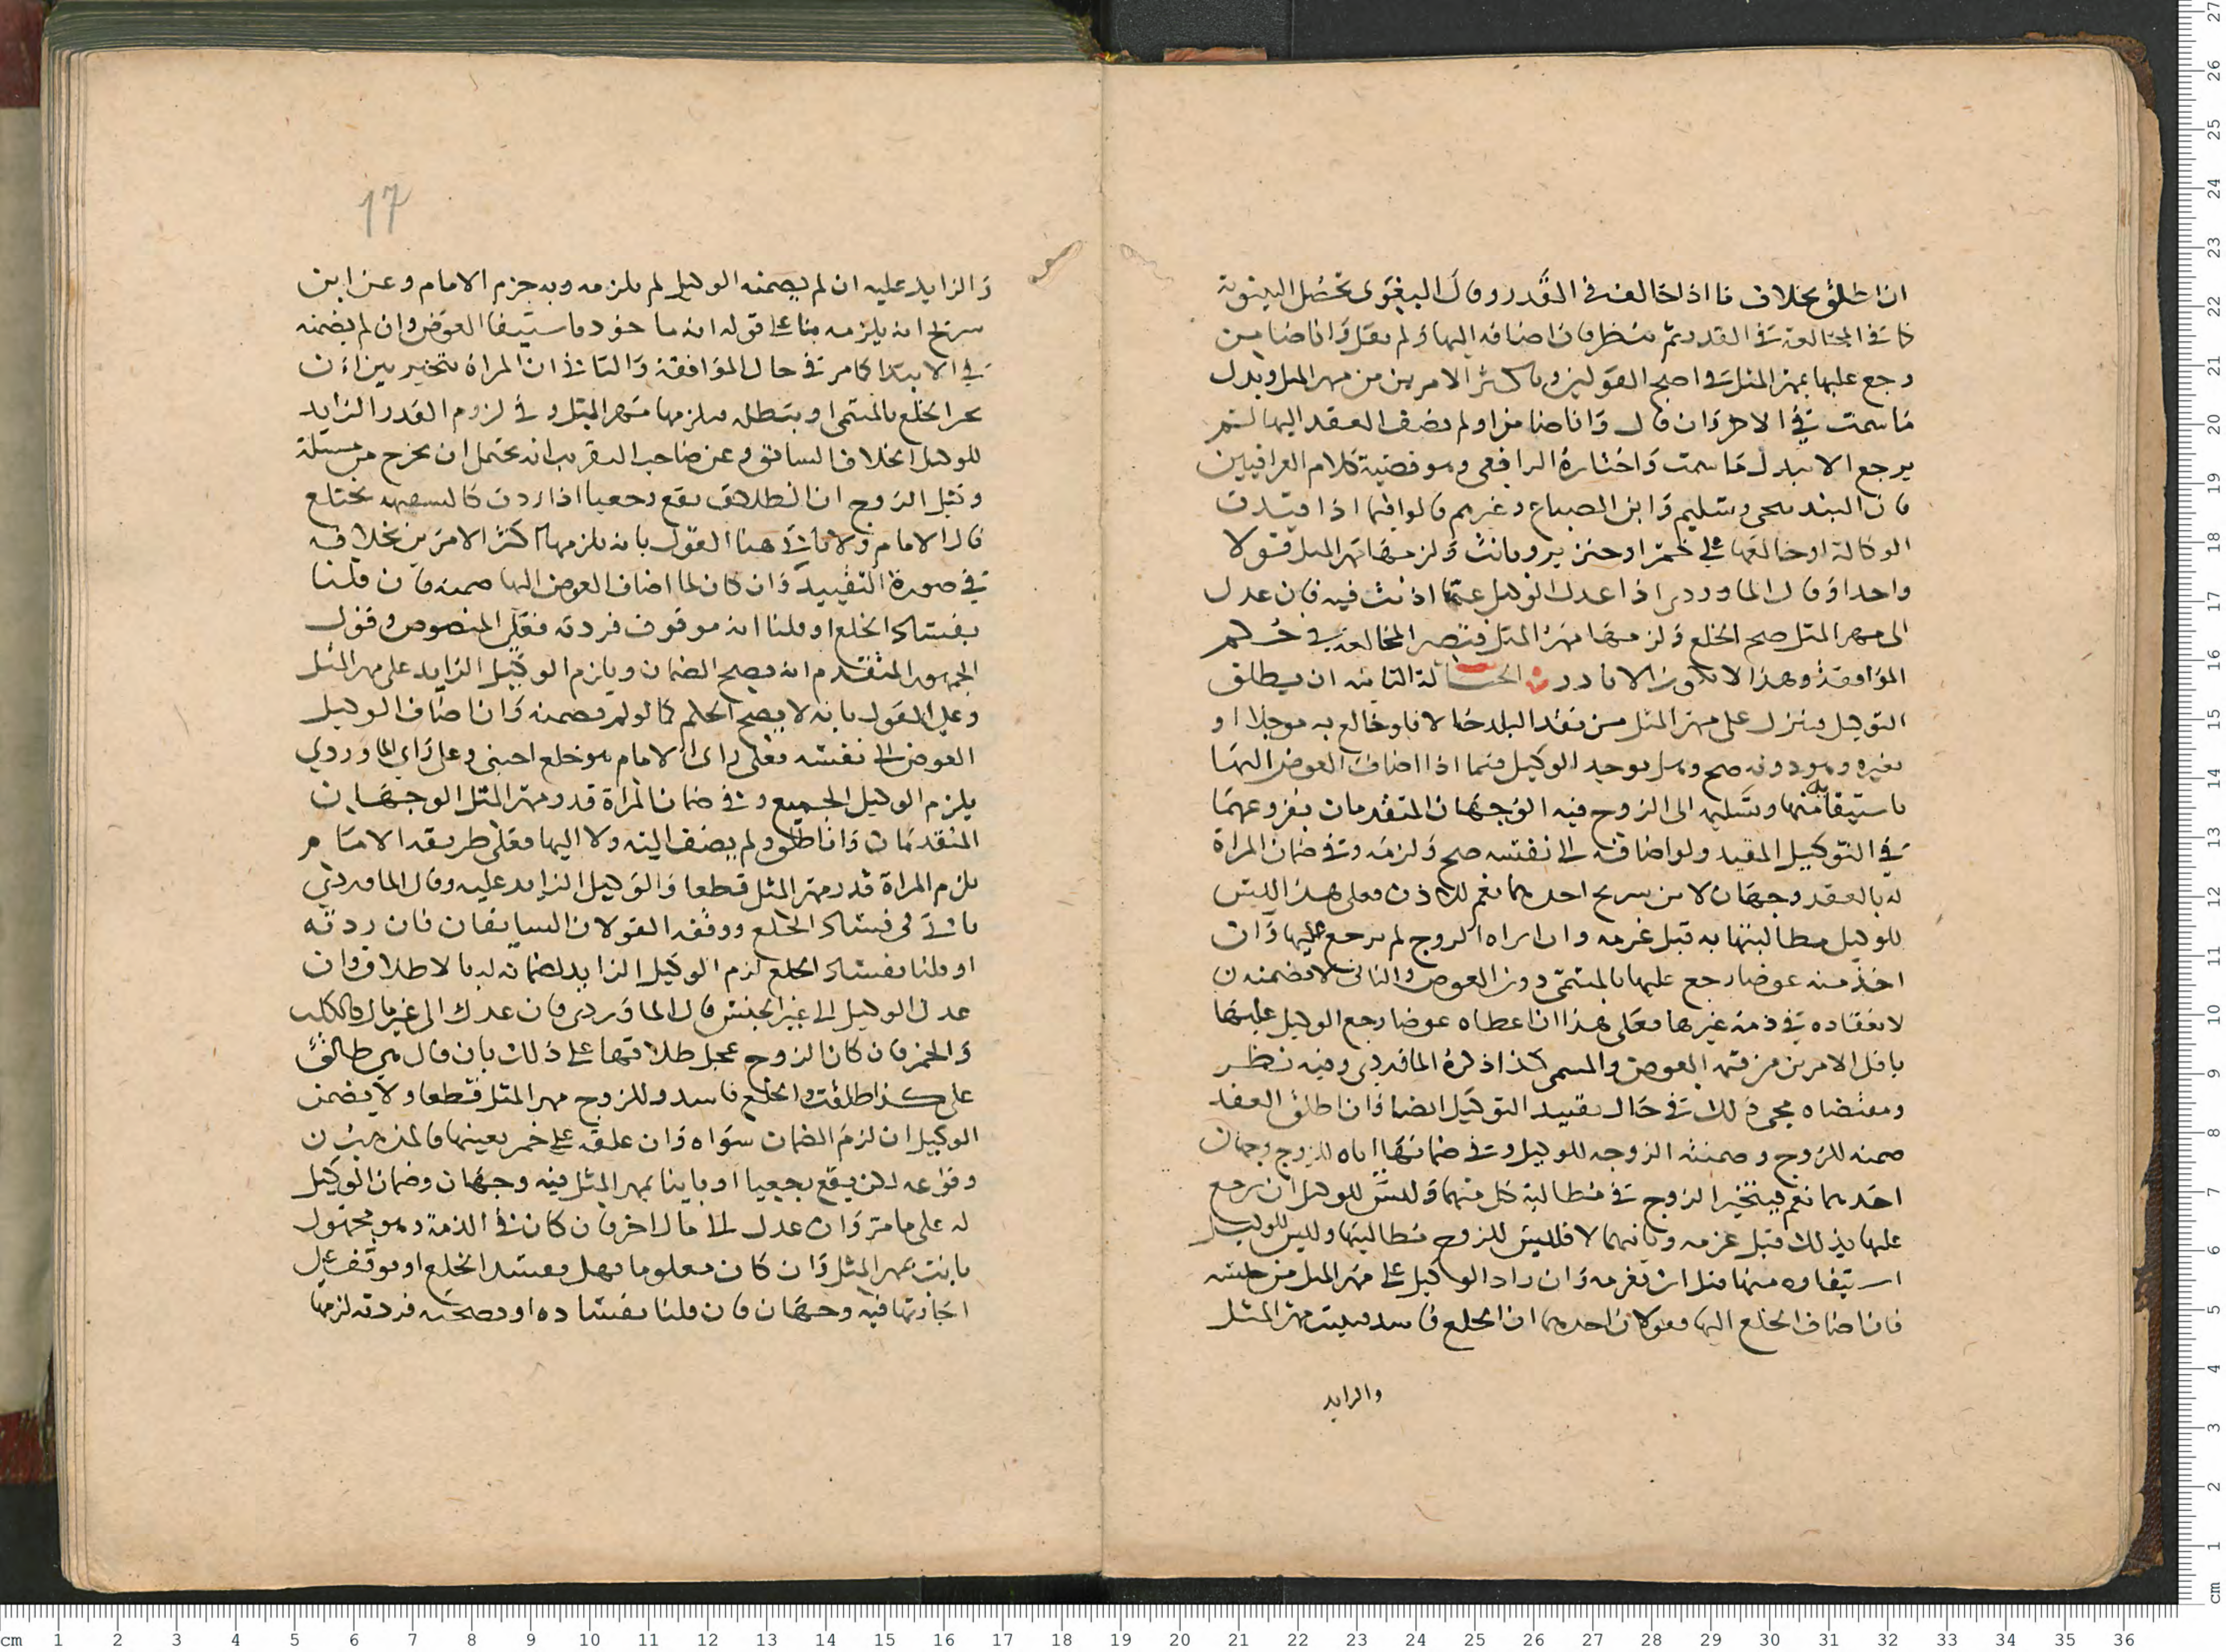 اذا طلق بخلاف ما اذا خالف في القدر وقال البغوي تحصل البينونة
كما في المخالفة في القدر ثم ينظر فان اضافه اليها ولم يقل وانا ضامن
رجع عليها بمهر المثل في اصح القولين وباكثر الامرين من مهر المثل وبدل
ما سمت في الاخر وان قال وانا ضامن او لم يضف العقد اليها لم
يرجع الا ببدل ما سمت واختاره الرافعي وهو قضية كلام العراقيين
فان البندنيجي وسليم وابن الصباغ وغيرهم قالوا فيما اذا قيدت
الوكالة او خالعها على خمر او خنزير وبانت ولزمها مهر المثل قولا
واحدا وقال الماوردي اذا عدل الوكيل عما اذنت فيه فان عدل
الى مهر المثل صح الخلع ولزمها مهر المثل فتصير المخالفة في حكم
الموافقة وهذا لا يكون الا نادرا الحالة الثانية ان يطلق
التوكيل وينزل على مهر المثل من نقد البلد حالا فلو خالع به موجلا او
بغيره وهو دونه صح وهل يوخذ الوكيل فيما اذا اضاف العوض اليها
باستيفائه منها وتسليمه الى الزوج فيه الوجهان المتقدمان بفروعهما
في التوكيل المقيد ولو اضافه الى نفسه صح ولزمه وفي ضمان المراة
له بالعقد وجهان لابن سريج احدهما نعم للاذن فعلى هذا ليس
للوكيل مطالبتها به قبل غرمه وان ابراه الزوج لم يرجع عليها وان
اخذ منه عوضا رجع عليها بالمسمى دون العوض والثاني لا تضمنه
لانعقاده في ذمة غيرها فعلى هذا ان اعطاه عوضا رجع الوكيل عليها
باقل الامرين من قيمة العوض والمسمى كذا ذكره الماوردي وفيه نظر
ومقتضاه مجي ذلك في حال تقييد التوكيل ايضا وان اطلق العقد
ضمنه للزوج وضمنته الزوجة للوكيل وفي ضمانها اياه للزوج وجهان
احدهما نعم فيتخير الزوج في مطالبة كل منهما وليس للوكيل ان يرجع
عليها بذلك قبل غرمه وثانيهما لا فليس للزوج مطالبتها وليس للوكيل
استيفاوه منها قبل ان يغرمه وان زاد الوكيل على مهر المثل من جنسه
فان اضاف الخلع اليها فقولان احدهما ان الخلع فاسد فيثبت مهر المثل
والزايد
17
والزايد عليه ان لم يضمنه الوكيل لم يلزمه وبه جزم الامام وعن ابن
سريج انه يلزمه بنا على قوله انه ماخوذ باستيفا العوض وان لم يضمنه
في الابتدا كما مر في حال الموافقة والثاني ان المراة تتخير بين ان
تجيز الخلع بالمسمى او تبطله فيلزمها مهر المثل وفي لزوم القدر الزايد
للوكيل الخلاف السابق وعن صاحب التقريب انه يحتمل ان يخرج من مسئلة
وكيل الزوج ان الطلاق يقع رجعيا اذا ردت كالسفيهة تختلع
قال الامام ولا ياتي هنا القول بانه يلزمها اكثر الامرين بخلافه
في صورة التقييد وان كان لما اضاف العوض اليها ضمنه فان قلنا
بفساد الخلع او قلنا انه موقوف فردته فعلى المنصوص وقول
الجمهور المتقدم انه يصح الضمان ويلزم الوكيل الزايد على مهر المثل
وعلى القول بانه لا يصح الحكم كما لو لم يضمنه وان اضاف الوكيل
العوض الى نفسه فعلى راى الامام هو خلع اجنبي وعلى راي الماوردي
يلزم الوكيل الجميع وفي ضمان المراة قدر مهر المثل الوجهان
المتقدمان وان اطلق ولم يضف اليه ولا اليها فعلى طريقة الامام
يلزم المراة قدر مهر المثل قطعا والوكيل الزايد عليه وقال الماوردي
ياتي في فساد الخلع ووقفه القولان السابقان فان ردته
او قلنا بفساد الخلع لزم الوكيل الزايد لضمانه له بالاطلاق وان
عدل الوكيل الى غير الجنس قال الماوردي فان عدل الى غير مال كالكلب
والخمر فان كان الزوج عجل طلاقها على ذلك بان قال هي طالق
على كذا طلقت والخلع فاسد وللزوج مهر المثل قطعا ولا يضمن
الوكيل ان لزم الضمان سواه وان علقه على خمر بعينها فالمذهب
وقوعه لكن يقع رجعيا او باينا بمهر المثل فيه وجهان وضمان الوكيل
له على ما مر وان عدل الى مال اخر فان كان في الذمة وهو مجهول
بانت بمهر المثل وان كان معلوما فهل يفسد الخلع او موقف على
اجازتها فيه وجهان فان قلنا بفساده او بصحته فردته لزمها